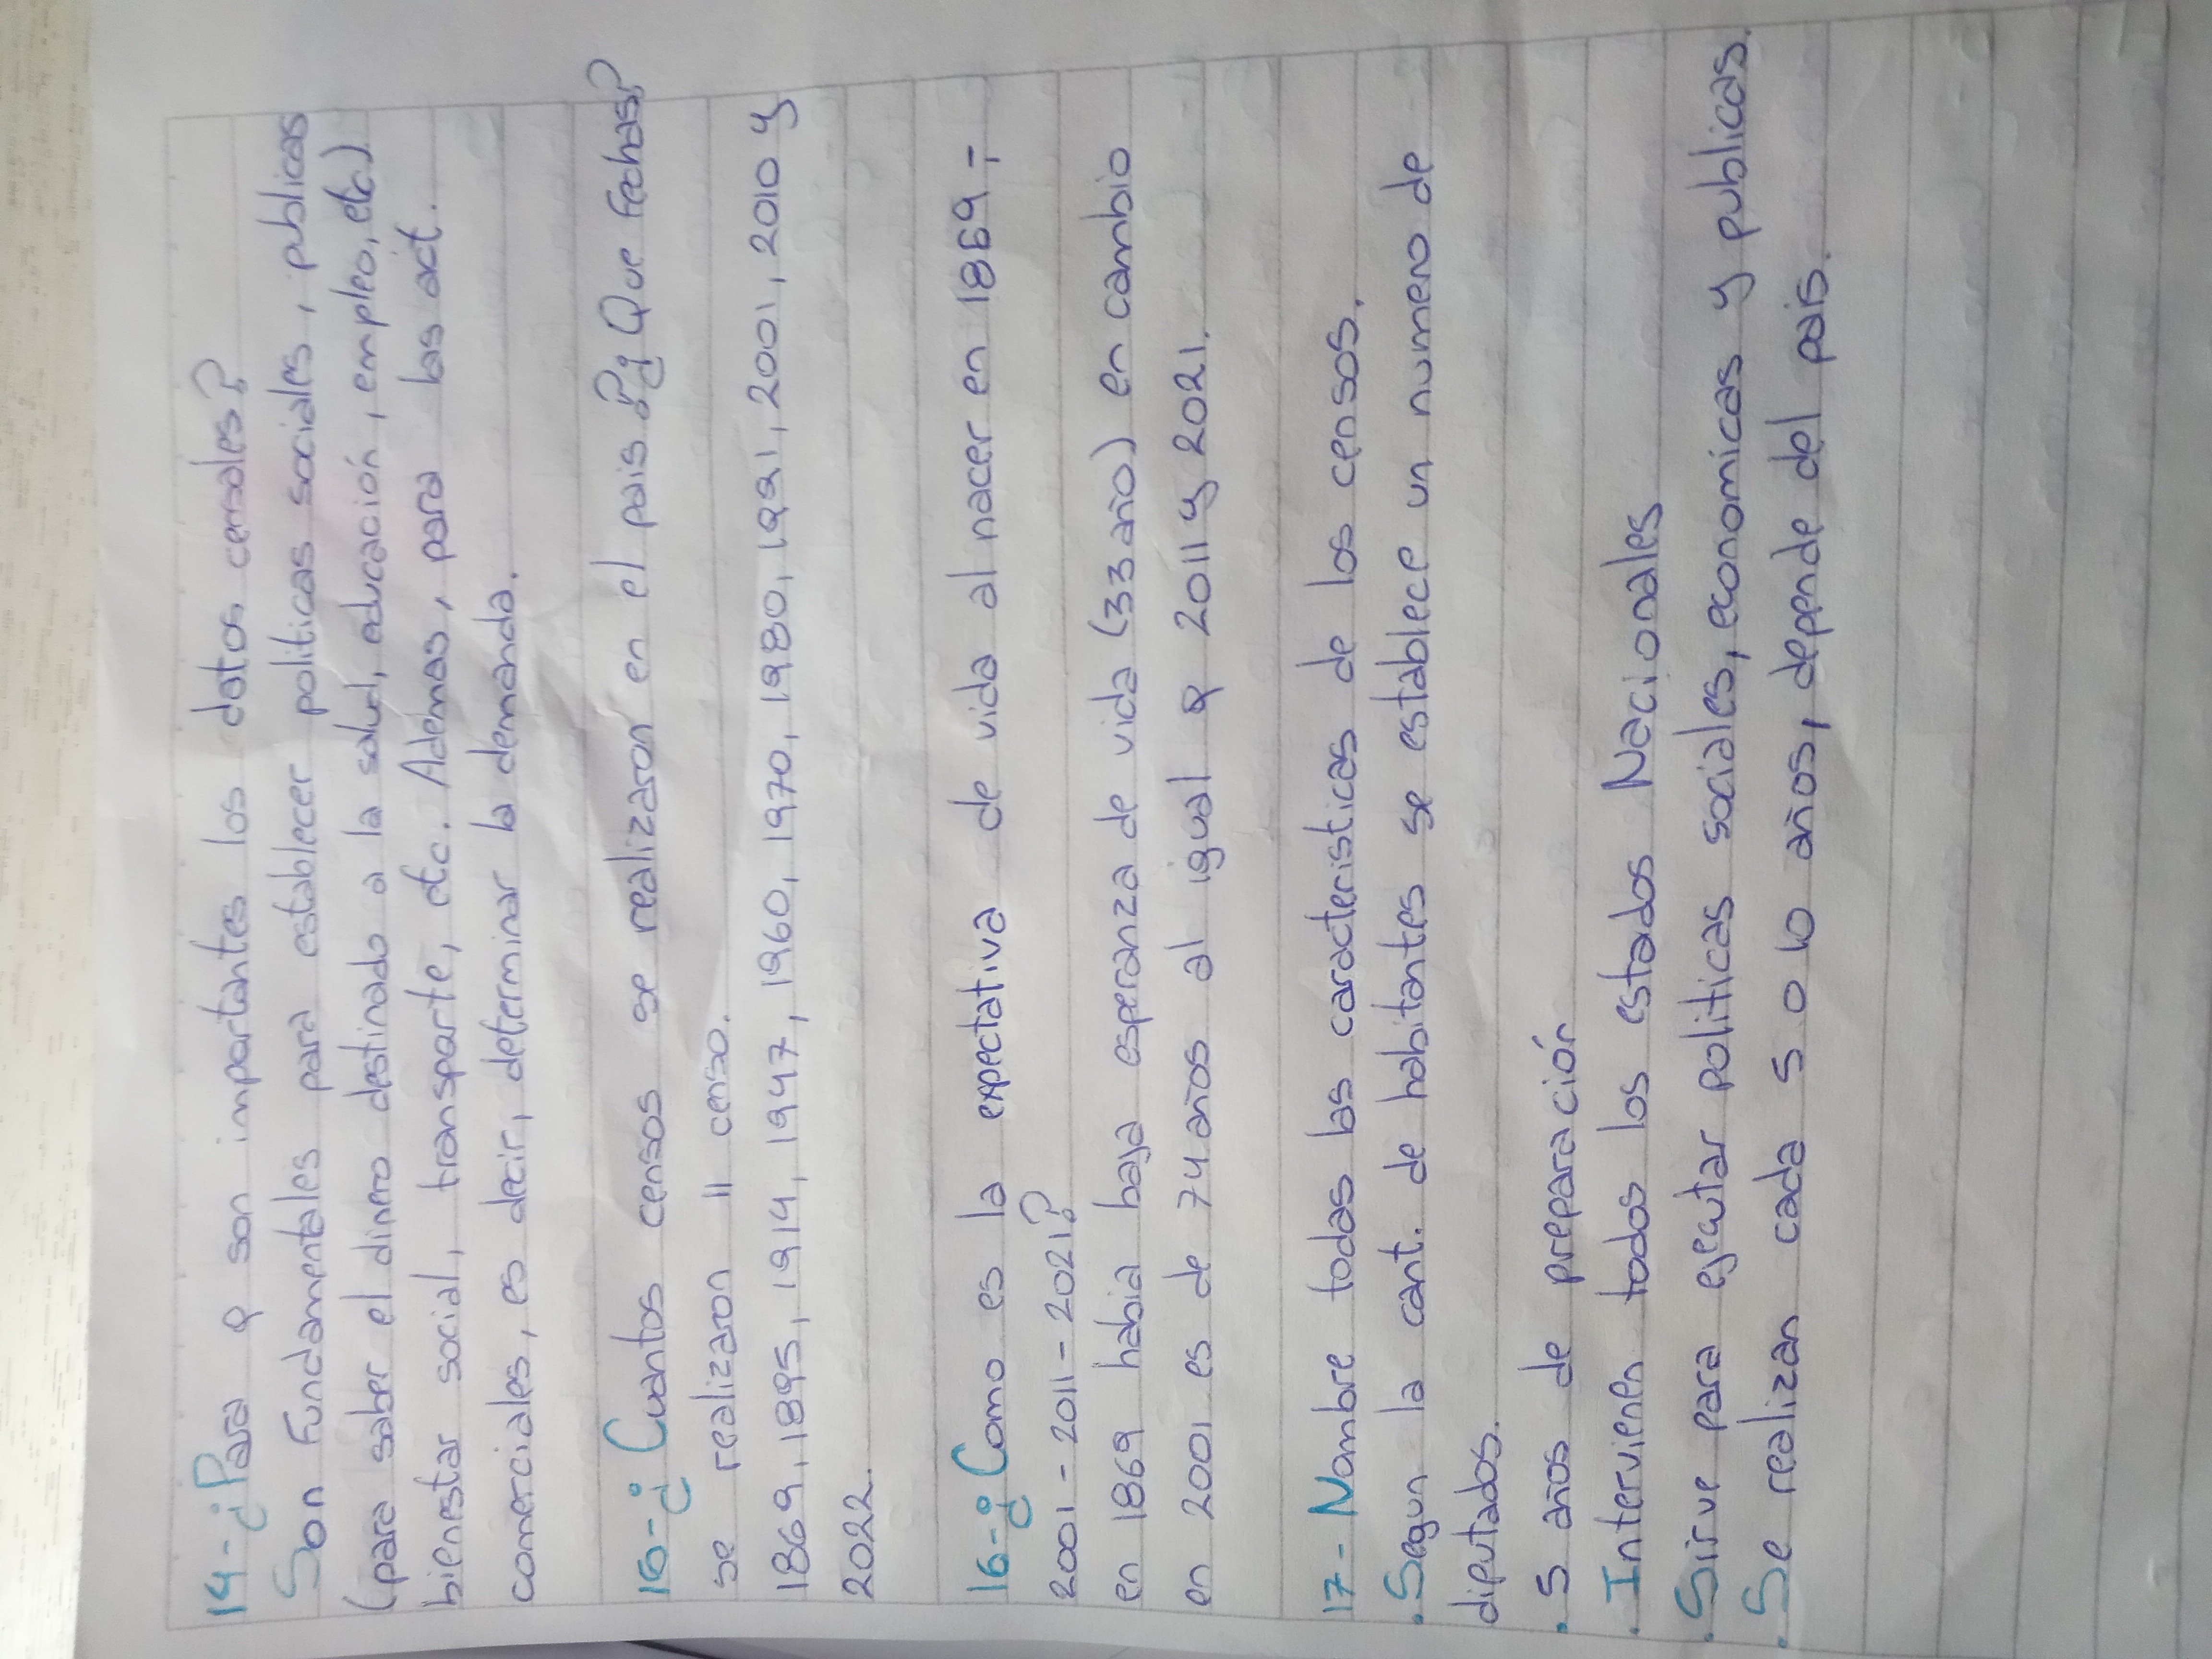 14-¿Para q son importantes los datos censales?
Son Fundamentales para establecer politicas sociales, publicas
(para saber el dinero destinado a la salud, educación, empleo, etc.)
bienestar social, transporte, etc. Ademas, para las act.
comerciales, es decir, determinar la demanda.
16-¿Cuantos censos se realizaron en el pais?¿Que Fechas?
se realizaron 11 censo.
1869, 1895, 1914, 1947, 1960, 1970, 1980, 1991, 2001, 2010 y
2022.
16-¿Como es la expectativa de vida al nacer en 1869 -
2001 - 2011 - 2021?
en 1869 habia baja esperanza de vida (33 año) en cambio
en 2001 es de 74 años al igual q 2011 y 2021.
17- Nombre todas las caracteristicas de los censos.
. Segun la cant. de habitantes se establece un numero de
diputados.
. 5 años de preparación
. Intervienen todos los estados Nacionales
. Sirve para ejecutar politicas sociales, economicas y publicas.
. Se realizan cada 5 o 10 años, depende del pais.